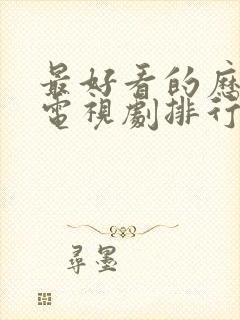 最好看的歷
電視劇排行
尋墨